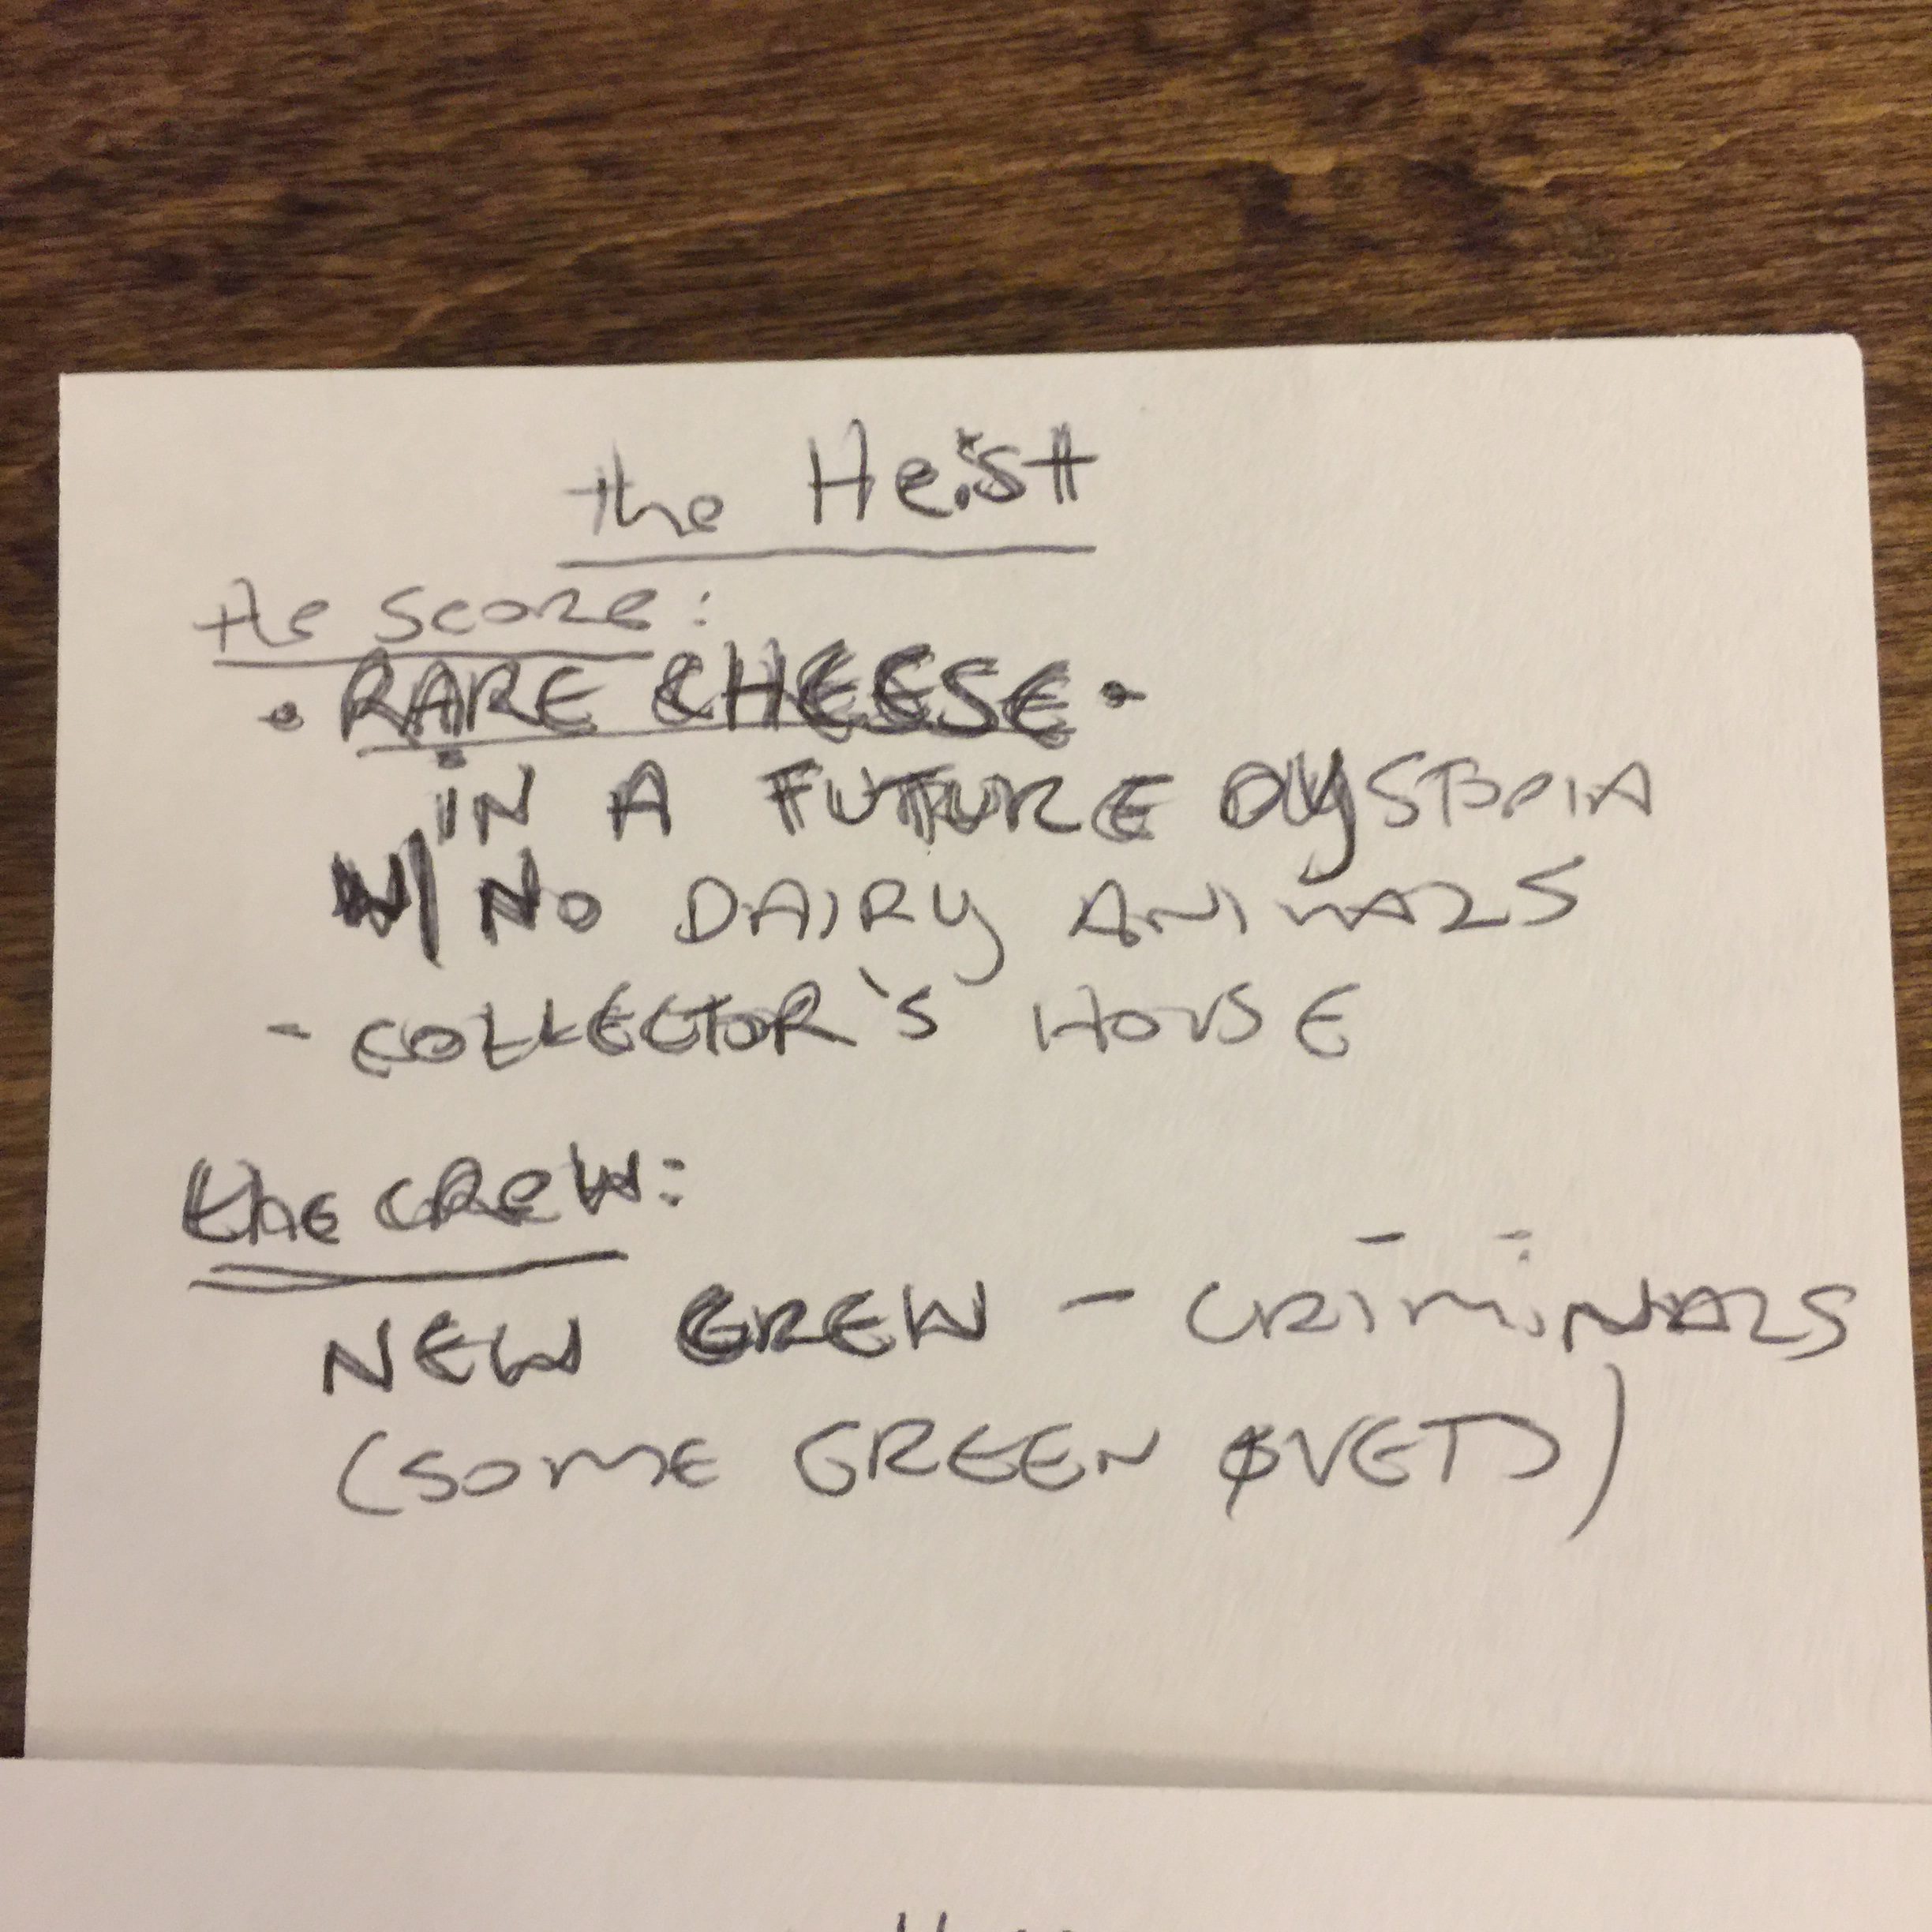 the Heist
the score:
• RARE CHEESE •
IN A FUTURE DYSTOPIA
W/ NO DAIRY ANIMALS
- COLLECTOR'S HOUSE
the CREW:
NEW CREW - CRIMINALS
(SOME GREEN & VETS)